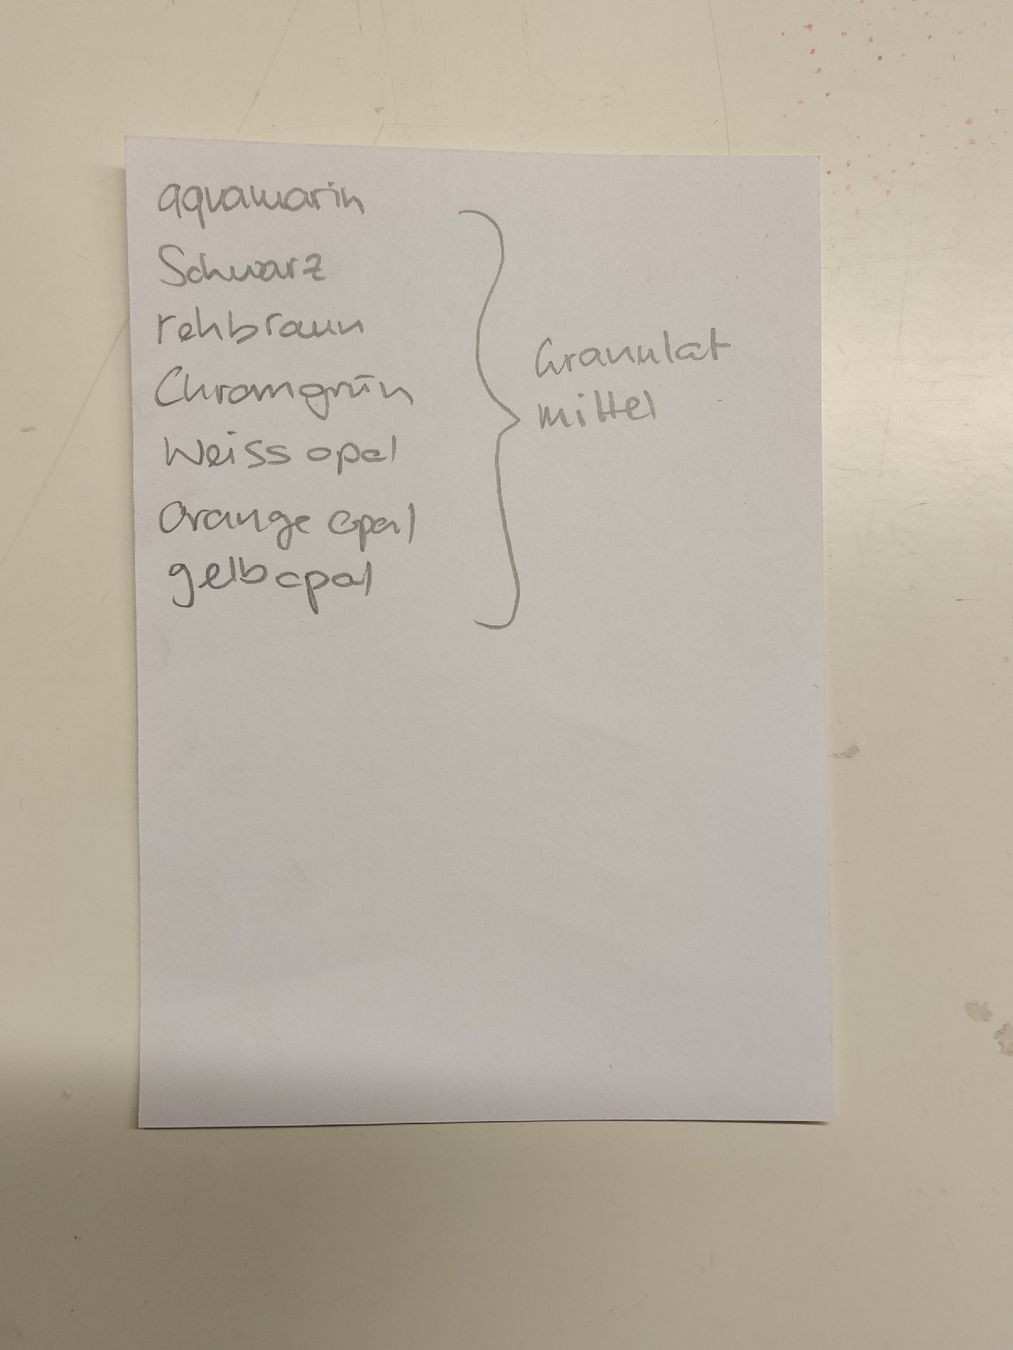 aquamarin
Schwarz
rehbraun
Chromgrün
Weiss opal
Orange opal
gelb opal
Granulat
mittel